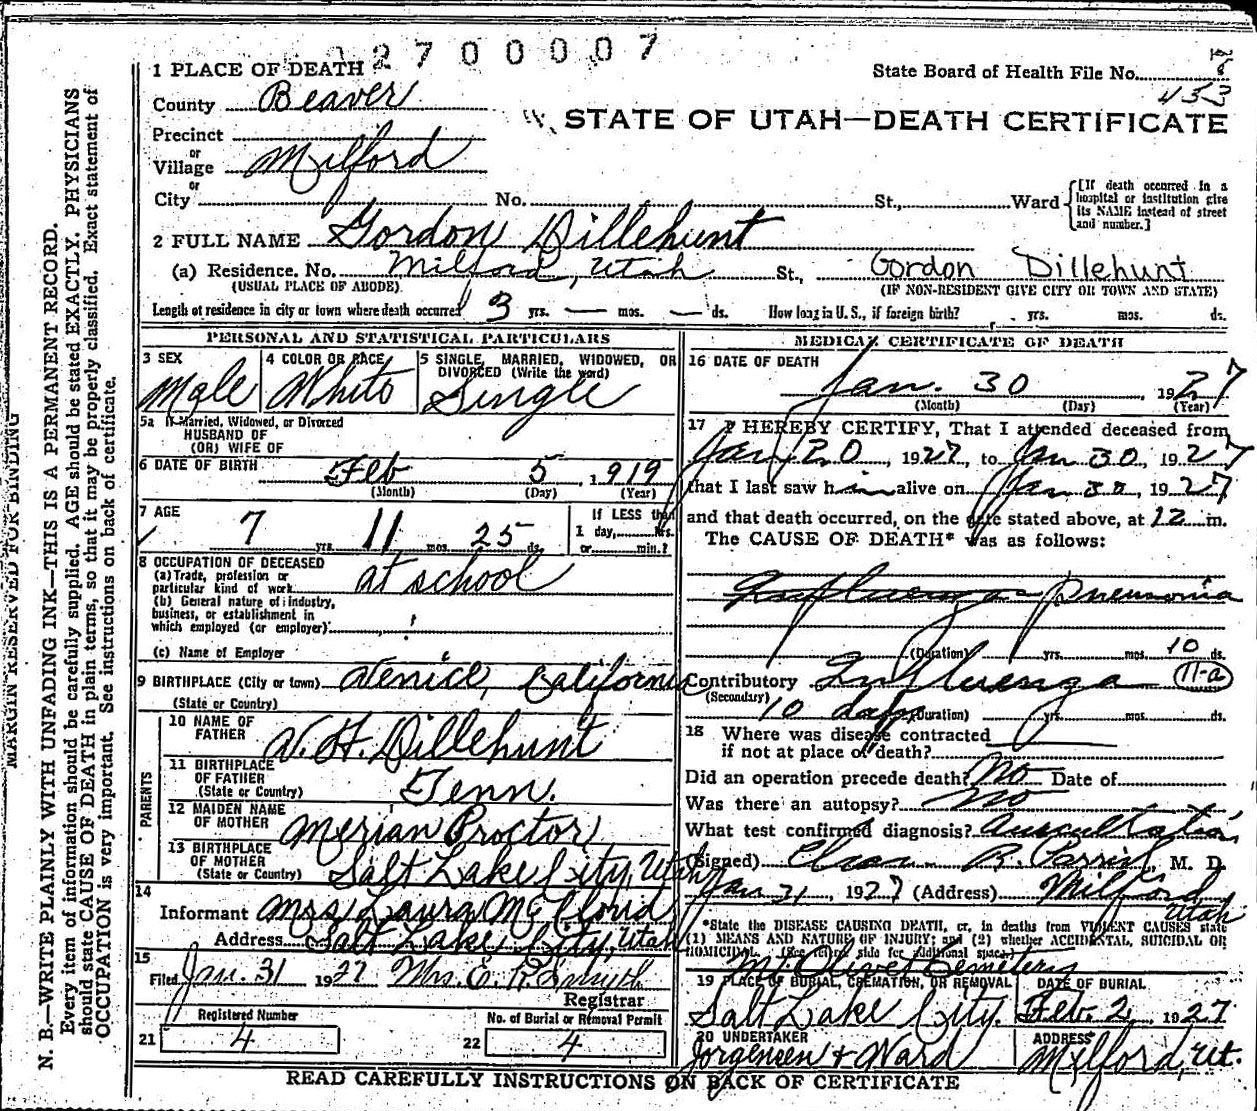 2700007
1 PLACE OF DEATH
State Board of Health File No.
453
County Beaver
STATE OF UTAH—DEATH CERTIFICATE
Precinct
or
Village Milford
or
City No. St., Ward
[If death occurred in a hospital or institution give its NAME instead of street and number.]
2 FULL NAME Gordon Dillehunt
(a) Residence. No. Milford, Utah St., Gordon Dillehunt
(USUAL PLACE OF ABODE) (IF NON-RESIDENT GIVE CITY OR TOWN AND STATE)
Length of residence in city or town where death occurred 3 yrs. — mos. — ds. How long in U. S., if foreign birth? yrs. mos. ds.
PERSONAL AND STATISTICAL PARTICULARS
3 SEX 4 COLOR OR RACE 5 SINGLE, MARRIED, WIDOWED, OR
DIVORCED (Write the word)
Male White Single
5a If Married, Widowed, or Divorced
HUSBAND OF
(OR) WIFE OF
6 DATE OF BIRTH Feb 5, 1919
(Month) (Day) (Year)
7 AGE 7 yrs. 11 mos. 25 ds.
If LESS than
1 day, hrs.
or min.?
8 OCCUPATION OF DECEASED
(a) Trade, profession or
particular kind of work at school
(b) General nature of industry,
business, or establishment in
which employed (or employer)
(c) Name of Employer
9 BIRTHPLACE (City or town) Venice, California
(State or Country)
PARENTS
10 NAME OF
FATHER V. H. Dillehunt
11 BIRTHPLACE
OF FATHER
(State or Country) Tenn.
12 MAIDEN NAME
OF MOTHER Merian Proctor
13 BIRTHPLACE
OF MOTHER
(State or Country) Salt Lake City, Utah
14
Informant Mrs Laura McCloud
Address Salt Lake City, Utah
15
Filed Jan. 31 1927 Mrs. E. R. Smyth
Registrar
Registered Number No. of Burial or Removal Permit
21 4 22 4
MEDICAL CERTIFICATE OF DEATH
16 DATE OF DEATH
Jan. 30, 1927
(Month) (Day) (Year)
17 I HEREBY CERTIFY, That I attended deceased from
Jan 20, 1927, to Jan 30, 1927
that I last saw him alive on Jan 30, 1927
and that death occurred, on the date stated above, at 12 m.
The CAUSE OF DEATH* was as follows:
Influenza pneumonia
(Duration) yrs. mos. 10 ds.
Contributory Influenza 11-a
(Secondary) 10 days (Duration) yrs. mos. ds.
18 Where was disease contracted
if not at place of death?
Did an operation precede death? No Date of
Was there an autopsy? No
What test confirmed diagnosis? Auscultation
(Signed) Chas. R. Parrish, M. D.
Jan 31, 1927 (Address) Milford
Utah
*State the DISEASE CAUSING DEATH, or, in deaths from VIOLENT CAUSES state
(1) MEANS AND NATURE OF INJURY; and (2) whether ACCIDENTAL, SUICIDAL OR
HOMICIDAL. (See reverse side for additional space.)
Mt. Olivet Cemetery
19 PLACE OF BURIAL, CREMATION, OR REMOVAL DATE OF BURIAL
Salt Lake City. Feb. 2, 1927
20 UNDERTAKER ADDRESS
Jorgensen & Ward Milford, Ut.
READ CAREFULLY INSTRUCTIONS ON BACK OF CERTIFICATE
MARGIN RESERVED FOR BINDING
N. B.—WRITE PLAINLY WITH UNFADING INK—THIS IS A PERMANENT RECORD.
Every item of information should be carefully supplied. AGE should be stated EXACTLY. PHYSICIANS
should state CAUSE OF DEATH in plain terms, so that it may be properly classified. Exact statement of
OCCUPATION is very important. See instructions on back of certificate.